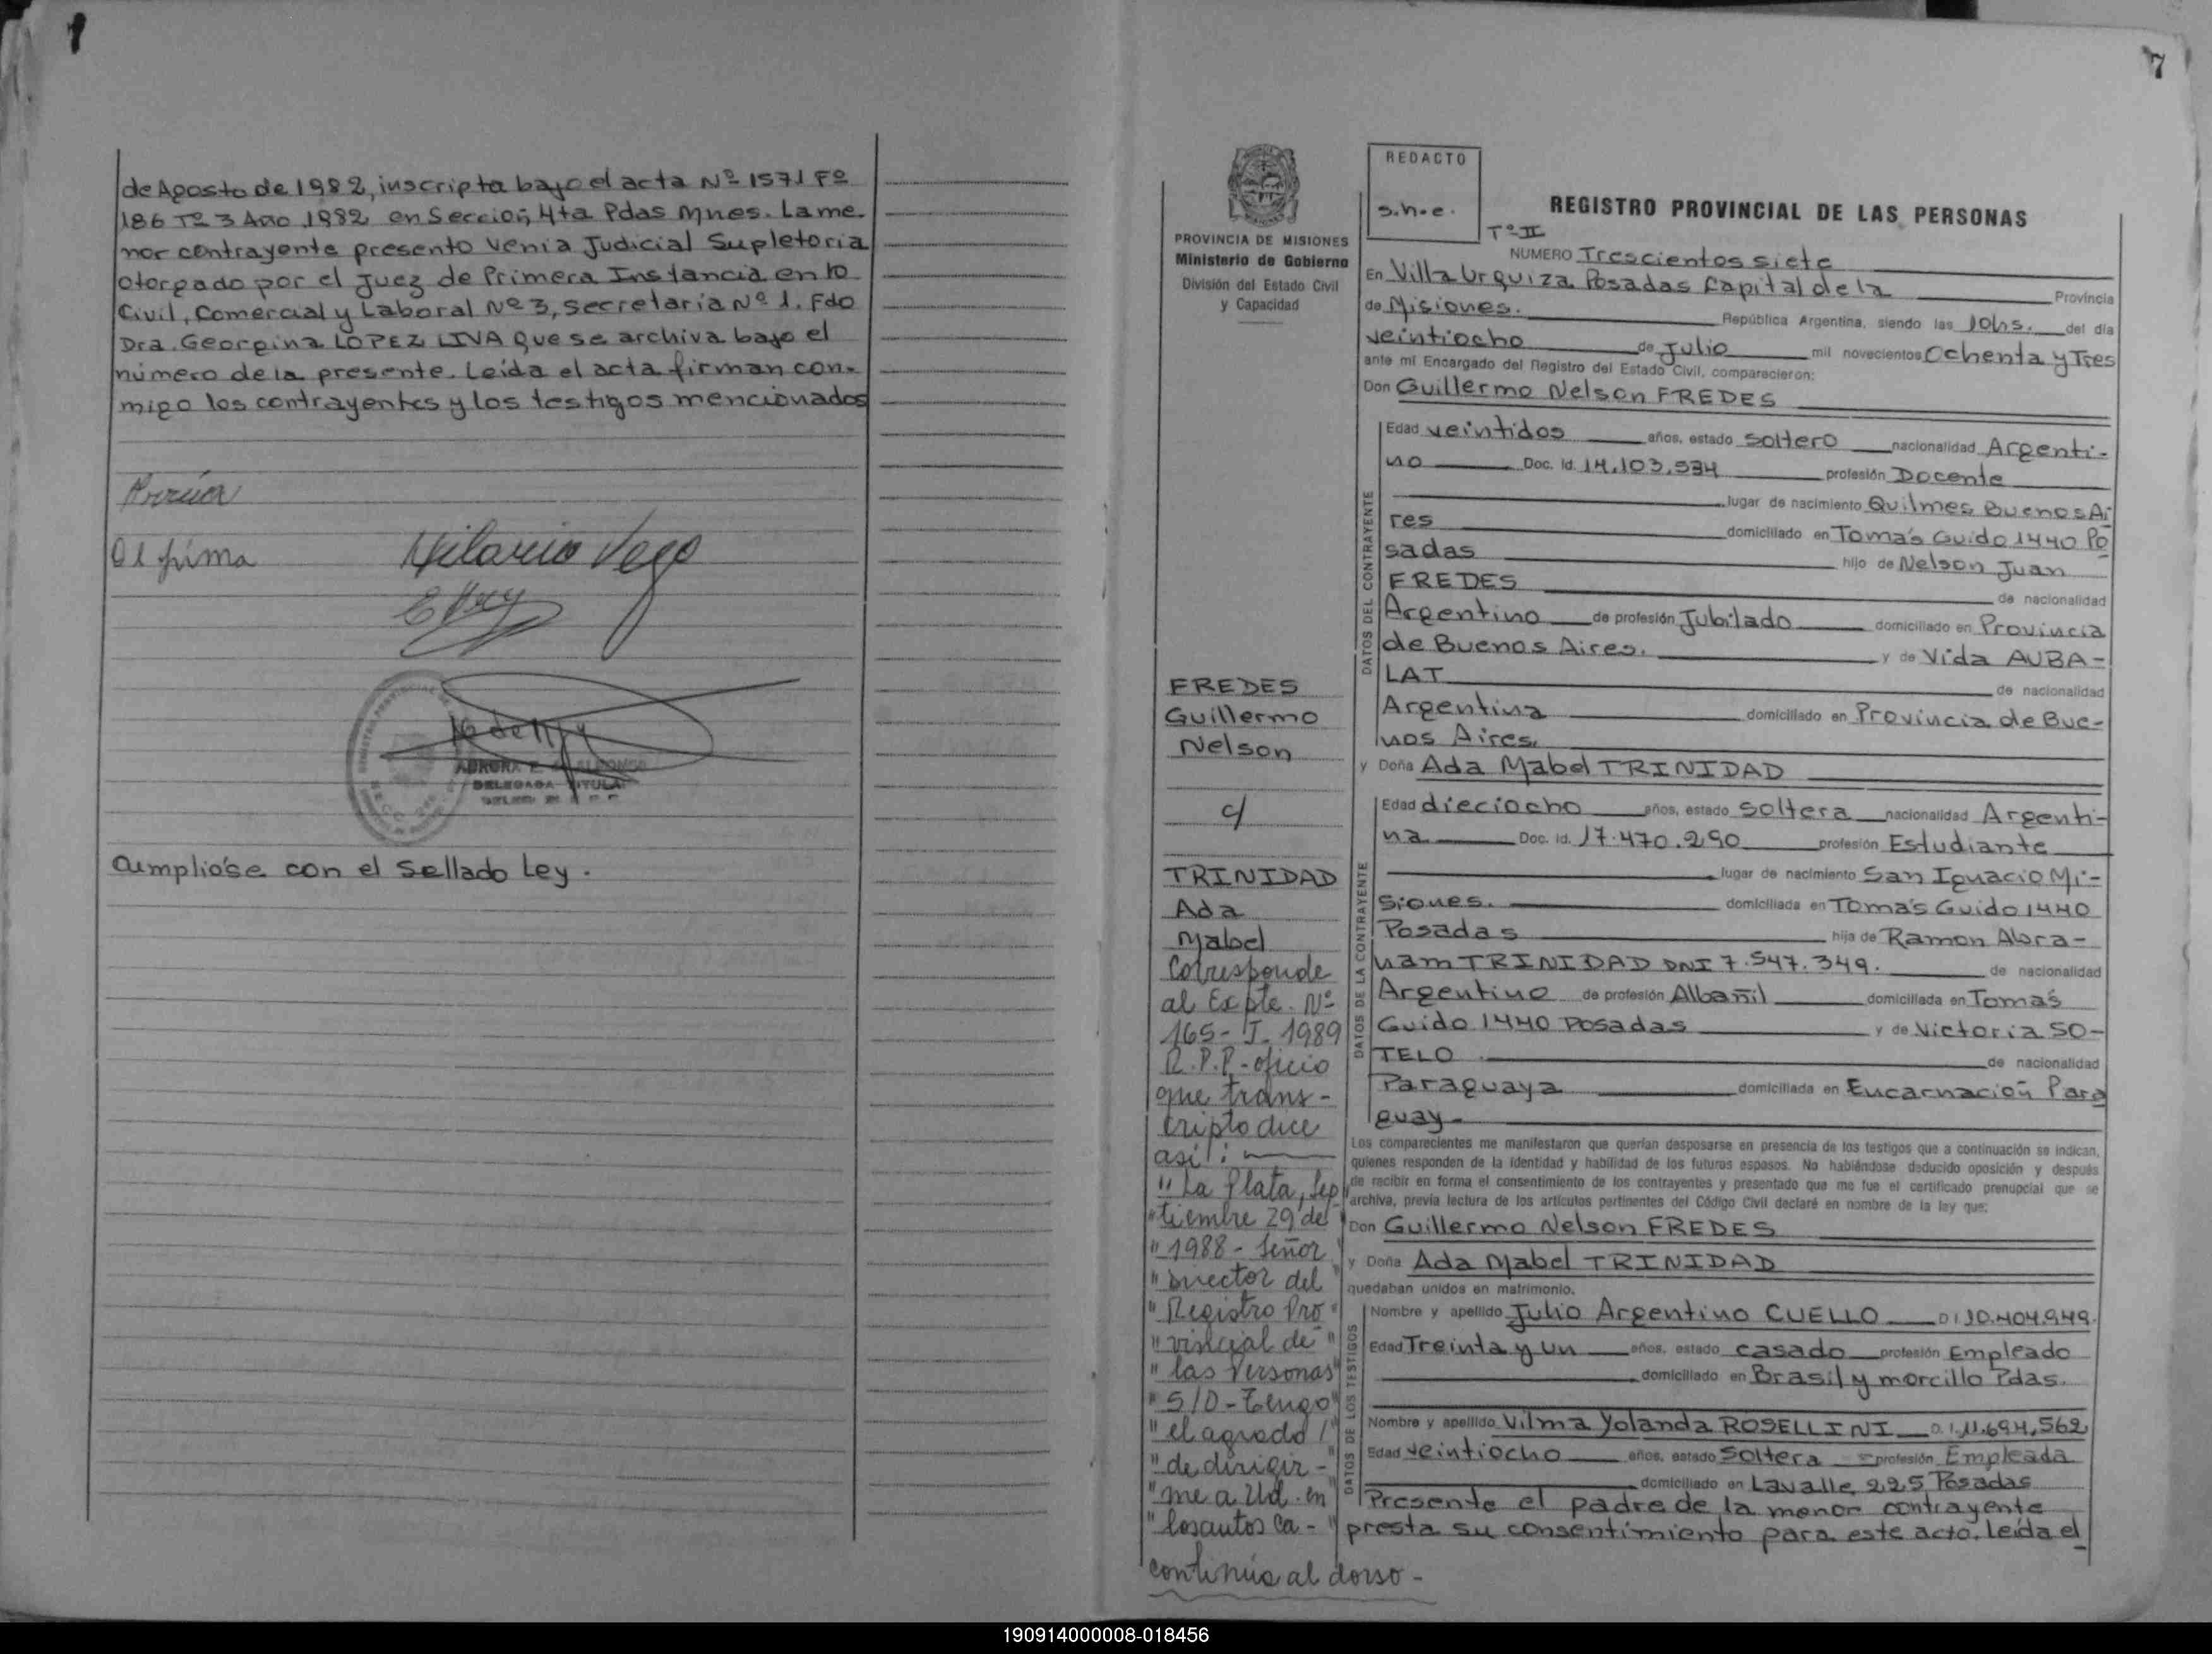 de Agosto de 1982, inscripta bajo el acta Nº 1571 Fº
186 Tº 3 Año 1982 en Sección 4ta Pdas Mnes. La me-
nor contrayente presento Venia Judicial Supletoria
otorgado por el Juez de Primera Instancia en lo
Civil, Comercial y Laboral Nº 3, Secretaría Nº 1. Fdo
Dra. Georgina LOPEZ LIVA que se archiva bajo el
número de la presente. Leída el acta firman con-
migo los contrayentes y los testigos mencionados
Hilario Vega
AURORA E.
DELEGADA TITULAR
Cumplióse con el Sellado Ley.
7
PROVINCIA DE MISIONES
Ministerio de Gobierno
División del Estado Civil
y Capacidad
FREDES
Guillermo
Nelson
c/
TRINIDAD
Ada
Mabel
Corresponde
al Expte. Nº
165-J-1989
R.P.P.-oficio
que trans-
cripto dice
así:
"La Plata, Sep
"tiembre 29 de
"1988- Señor "
"Director del "
"Registro Pro"
"vincial de "
"las Personas"
"S/D-Tengo"
"el agrado /"
"de dirigir-"
"me a Ud. en
"los autos ca-"
continúa al dorso-
REDACTO
s.n.e.
REGISTRO PROVINCIAL DE LAS PERSONAS
Tº II
NUMERO Trescientos siete
En Villa Urquiza Posadas Capital de la Provincia
de Misiones. República Argentina, siendo las 10hs. del día
veintiocho de Julio mil novecientos Ochenta y Tres
ante mí Encargado del Registro del Estado Civil, comparecieron:
Don Guillermo Nelson FREDES
DATOS DEL CONTRAYENTE
Edad veintidos años, estado soltero nacionalidad Argenti-
no Doc. Id. 14.103.534 profesión Docente
lugar de nacimiento Quilmes Buenos Ai
res domiciliado en Tomás Guido 1440 Po
sadas hijo de Nelson Juan
FREDES de nacionalidad
Argentino de profesión Jubilado domiciliado en Provincia
de Buenos Aires. y de Vida AUBA-
LAT de nacionalidad
Argentina domiciliado en Provincia de Bue-
nos Aires.
y Doña Ada Mabel TRINIDAD
DATOS DE LA CONTRAYENTE
Edad dieciocho años, estado soltera nacionalidad Argenti-
na Doc. Id. 17.470.290 profesión Estudiante
lugar de nacimiento San Ignacio Mi-
siones. domiciliada en Tomás Guido 1440
Posadas hija de Ramon Abra-
ham TRINIDAD DNI 7.547.349. de nacionalidad
Argentino de profesión Albañil domiciliada en Tomás
Guido 1440 Posadas y de Victoria SO-
TELO. de nacionalidad
Paraguaya domiciliada en Encarnación Para
guay-
Los comparecientes me manifestaron que querían desposarse en presencia de los testigos que a continuación se indican,
quienes responden de la identidad y habilidad de los futuros esposos. No habiéndose deducido oposición y después
de recibir en forma el consentimiento de los contrayentes y presentado que me fue el certificado prenupcial que se
archiva, previa lectura de los artículos pertinentes del Código Civil declaré en nombre de la ley que:
Don Guillermo Nelson FREDES
y Doña Ada Mabel TRINIDAD
quedaban unidos en matrimonio.
DATOS DE LOS TESTIGOS
Nombre y apellido Julio Argentino CUELLO DI 10.404.949.
Edad Treinta y un años, estado casado profesión Empleado
domiciliado en Brasil y morcillo Pdas.
Nombre y apellido Vilma Yolanda ROSELLINI D.I. 11.694.562
Edad veintiocho años, estado Soltera profesión Empleada
domiciliado en Lavalle 225 Posadas
Presente el padre de la menor contrayente
presta su consentimiento para este acto. Leída el
190914000008-018456